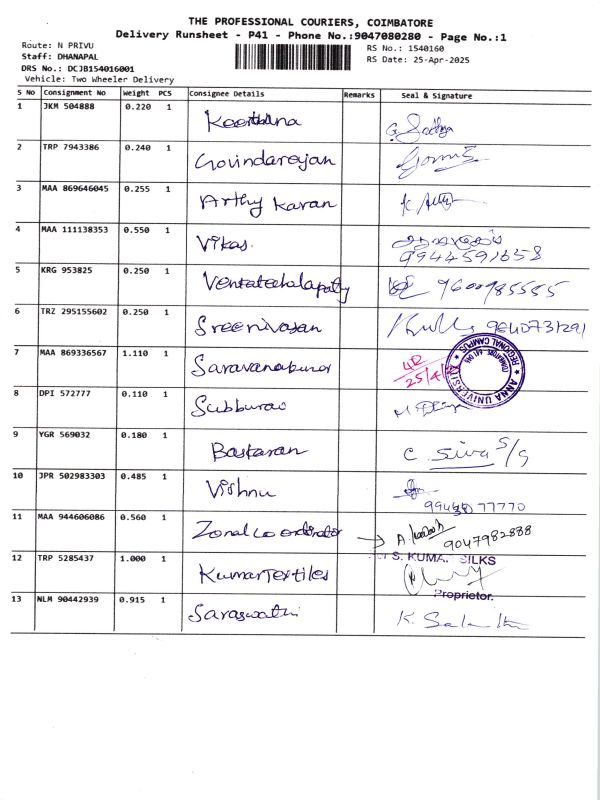 THE PROFESSIONAL COURIERS, COIMBATORE
Delivery Runsheet - P41 - Phone No.:9047080280 - Page No.:1
Route: N PRIVU
RS No.: 1540160
Staff: DHANAPAL
RS Date: 25-Apr-2025
DRS No.: DCJB154016001
Vehicle: Two Wheeler Delivery
S No Consignment No Weight PCS Consignee Details Remarks Seal & Signature
1 JKM 504888 0.220 1 Keerthana G. Sathya
2 TRP 7943386 0.240 1 Govindarajan
3 MAA 869646045 0.255 1 Arthy Karan
4 MAA 111138353 0.550 1 Vikas.
9944591658
5 KRG 953825 0.250 1 Venkatachalapathy 9600985555
6 TRZ 295155602 0.250 1 Sreenivasan 9840731291
7 MAA 869336567 1.110 1 Saravanakumar 25/4/
ANNA UNIVERSITY REGIONAL CAMPUS COIMBATORE 641 046
8 DPI 572777 0.110 1 Subburao
9 YGR 569032 0.180 1 Baskaran C. Siva
10 JPR 502983303 0.485 1 Vishnu
77770
11 MAA 944606086 0.560 1 Zonal co ordinator
9047982888
12 TRP 5285437 1.000 1 Kumar Textiles S. KUMA SILKS
Proprietor.
13 NLM 90442939 0.915 1 Saraswathi K.